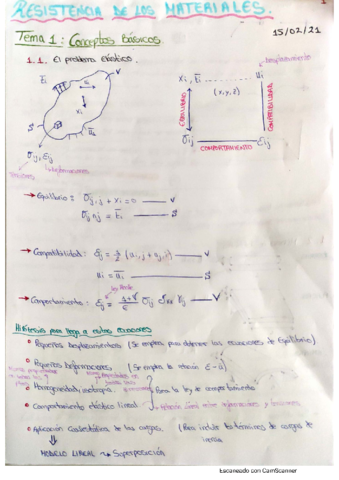 RESISTENCIA DE LOS MATERIALES.
15/02/21
Tema 1: Conceptos Básicos.
1.1. El problema elástico.
Desplazamiento
EQUILIBRIO
(x,y,z)
COMPATIBILIDAD
COMPORTAMIENTO
Tensiones
Deformaciones
→ Equilibrio: σij,j + xi = 0 — V
σij nj = t̄i — S
→ Compatibilidad: εij = 1/2 (ui,j + uj,i) — V
ui = ūi — S
→ Comportamiento:
Hipótesis para llegar a estas ecuaciones
• Pequeños desplazamientos (Se emplea para determinar las ecuaciones de Equilibrio)
• Pequeñas deformaciones (Se emplea la relación ε-u)
• Homogeneidad, isotropía Para la ley de comportamiento
• Comportamiento elástico lineal → Relación lineal entre deformaciones y tensiones
• Aplicación cuasiestática de las cargas (Para incluir los términos de cargas de inercia
MODELO LINEAL → Superposición
Escaneado con CamScanner